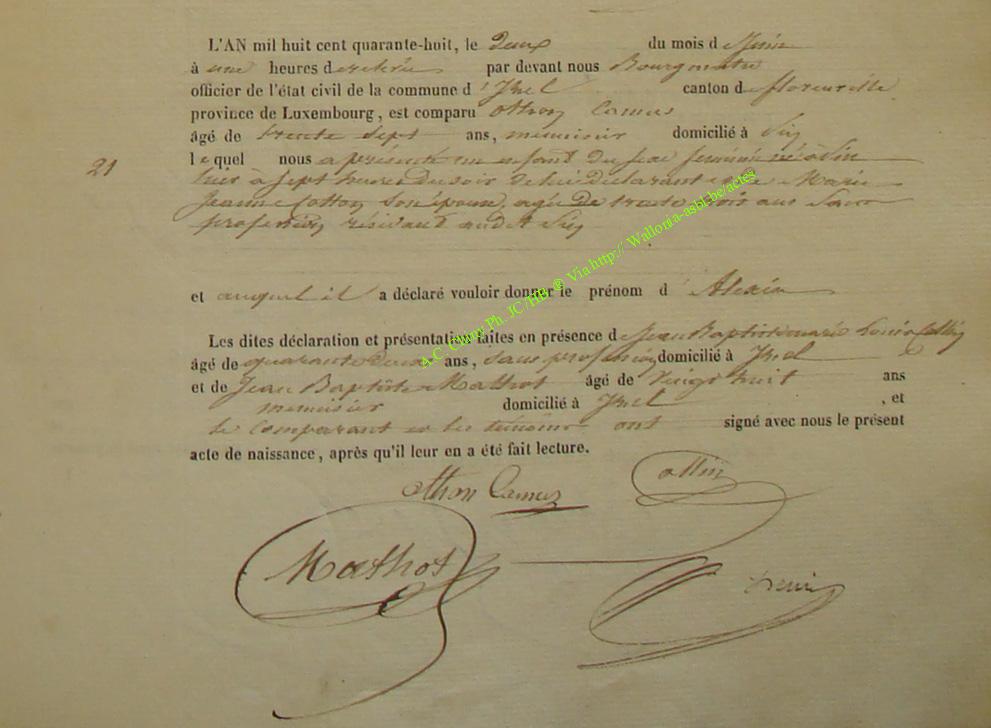 L'AN mil huit cent quarante-huit, le deux du mois d Juin
à une heures d par devant nous Bourgmestre
officier de l'état civil de la commune d'Izel canton d florenville
province de Luxembourg, est comparu othon Camus
âgé de trente sept ans, menuisier domicilié à
21
lequel nous a présenté un enfant du sexe féminin né à
hier à sept heures du soir de lui déclarant et de Marie
Jeanne Cotton son épouse, agée de trente trois ans sans
profession résidant audit
et auquel il a déclaré vouloir donner le prénom d'
Les dites déclaration et présentation faites en présence de Jean Baptiste Louis Collin
âgé de quarante deux ans, sans profession domicilié à Izel
et de Jean Baptiste Mathot âgé de vingt huit ans
menuisier domicilié à Izel, et
le comparant et les témoins ont signé avec nous le présent
acte de naissance, après qu'il leur en a été fait lecture.
othon Camus
Collin
Mathot
A.C. Chiny Ph. JC /HB ® Via http:// Wallonia-asbl-be/actes